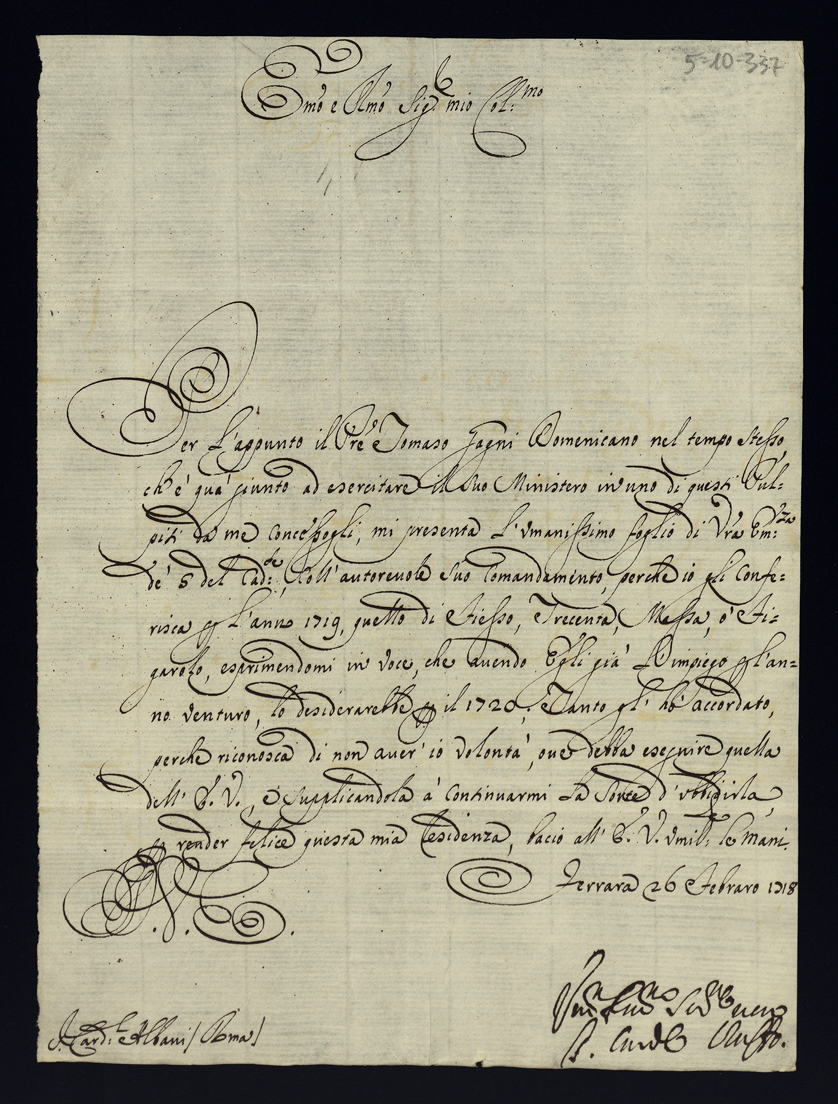 5-10-337
Emo e Rmo Sig.r mio Coll:mo
Per l'appunto il Pre Tomaso Gagni Domenicano nel tempo stesso,
ch'è quà giunto ad esercitare il suo Ministero in uno di questi Pul-
piti da me concessogli, mi presenta l'umanissimo foglio di Vra Em:za
de' 5 del Cad:te, coll'autorevole suo Comandamento, perche io gli confe-
risca p l'anno 1719, quello di Fiesso, Trecenta, Massa, ò Fi-
garolo, esprimendomi in voce, che avendo Egli già l'impiego p l'an-
no venturo, lo desiderarebbe p il 1720, e Tanto gl' hò accordato,
perche riconosca di non aver' io volontà, ove debba eseguire quella
dell' E. V., e supplicandola à continuarmi la sorte d'ubbidirla,
p render felice questa mia Residenza, bacio all' E. V. umil: le mani.
Ferrara 26 Febraro 1718
V. E.
S. Card:le Albani / Roma /